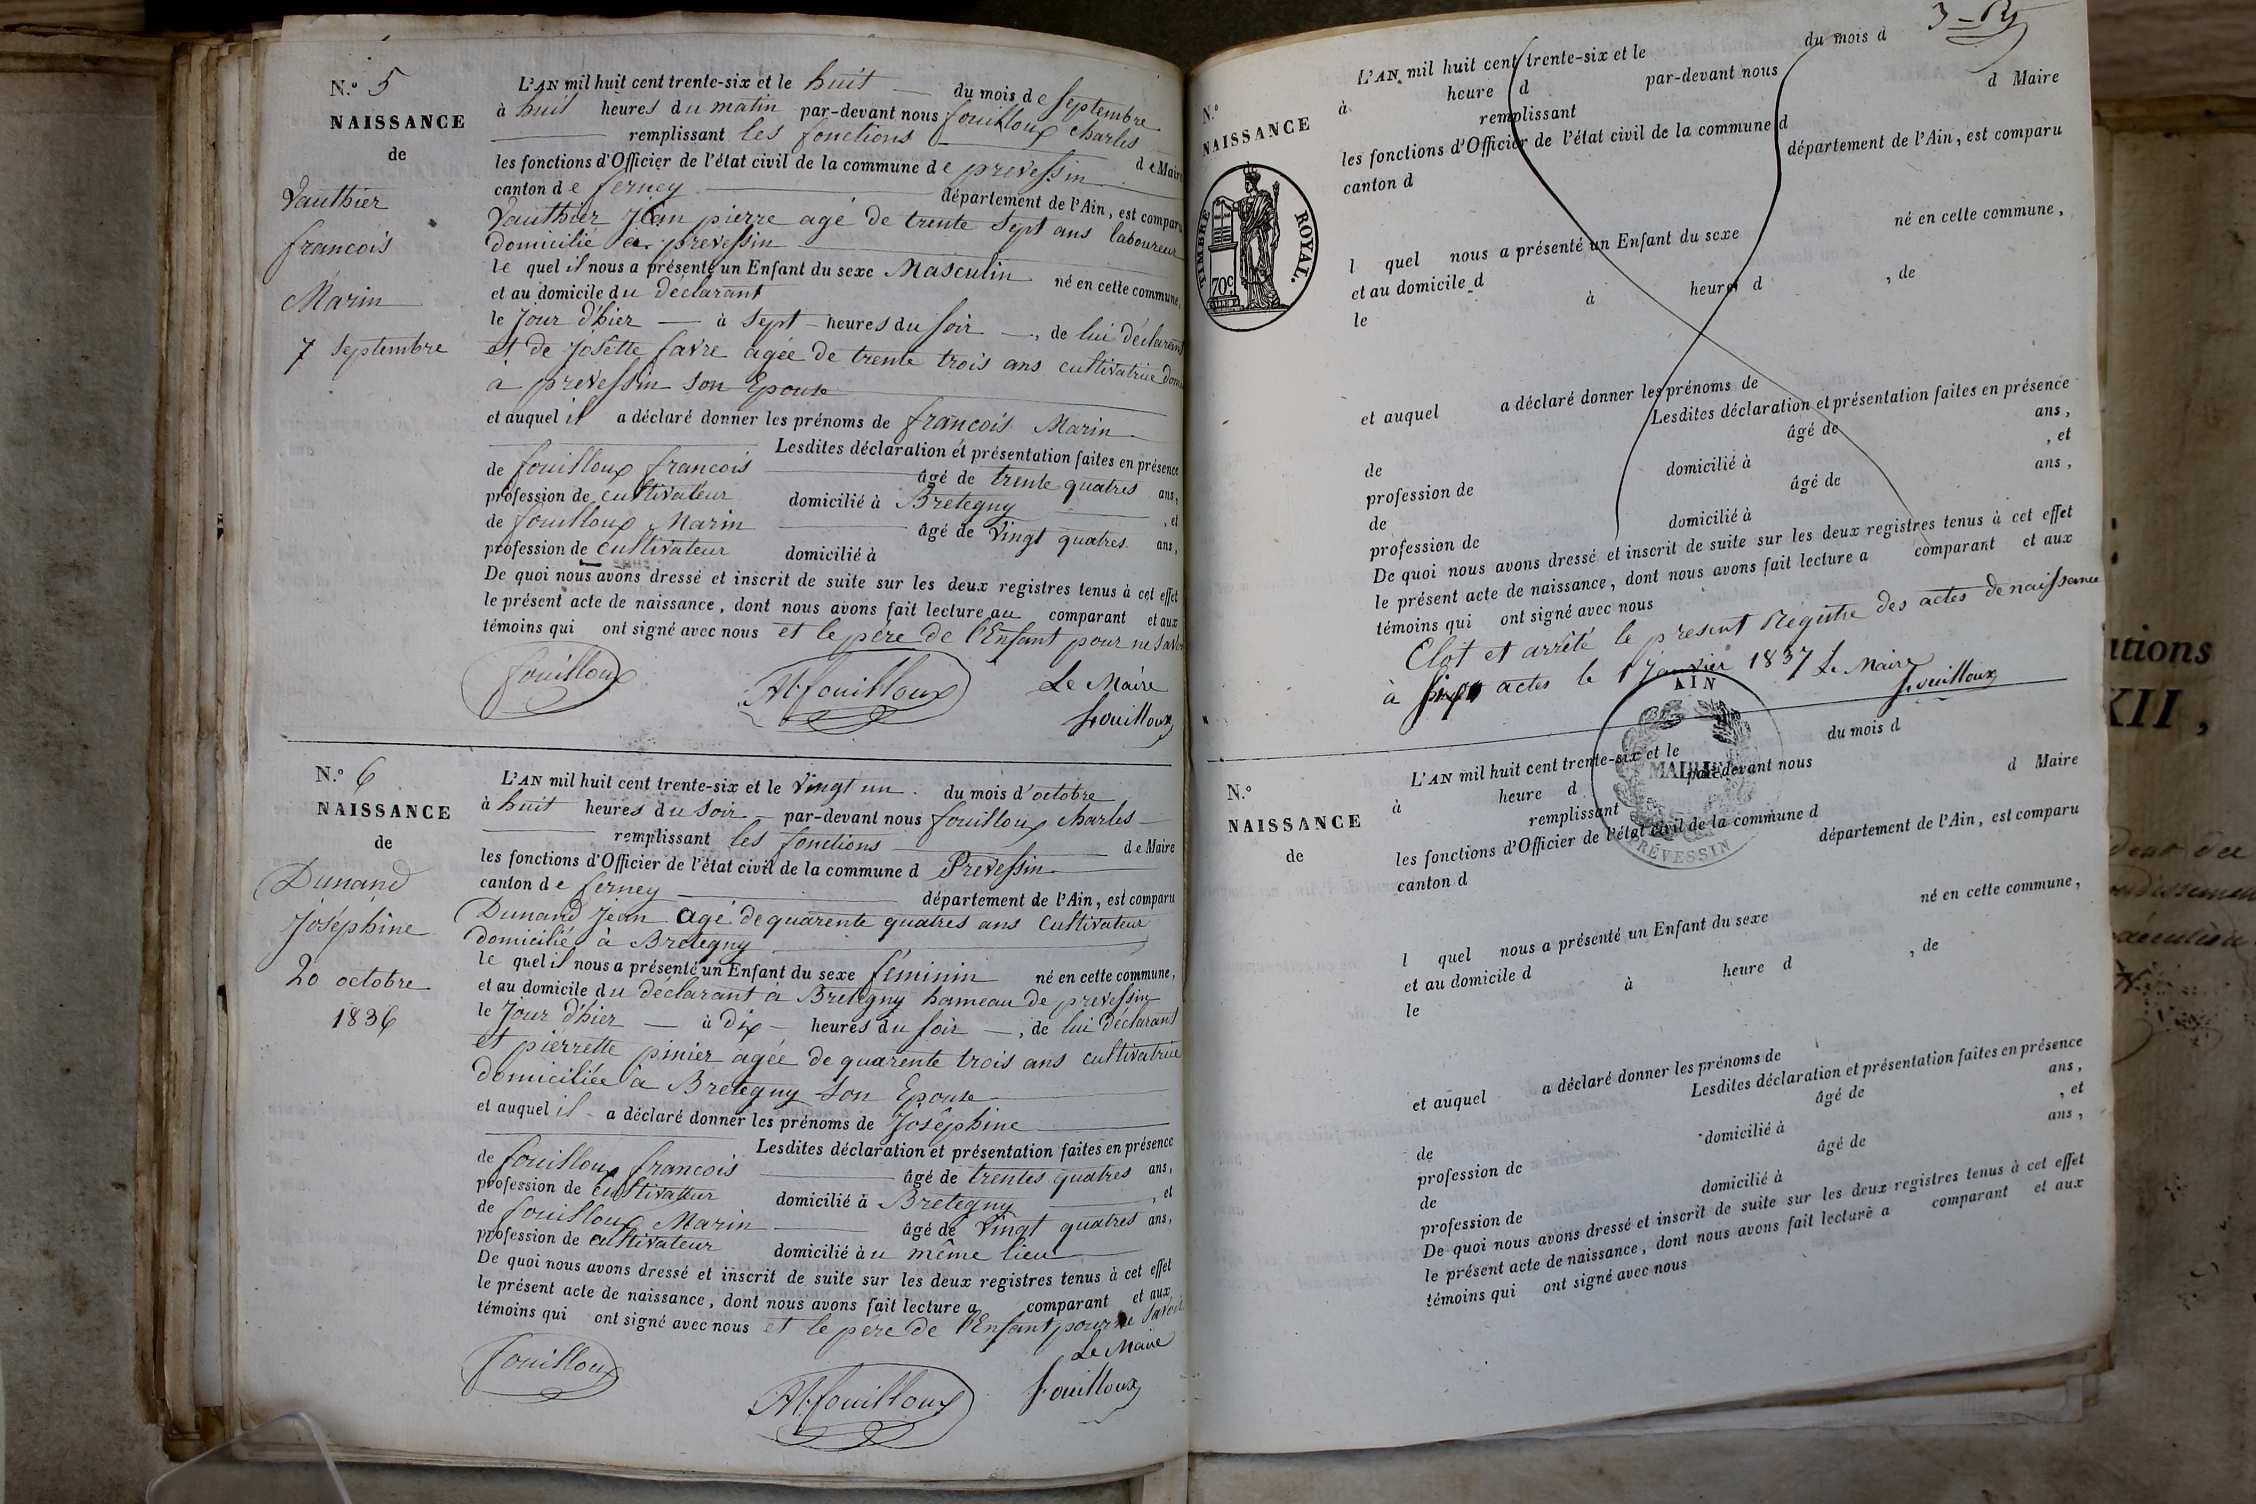 N.° 5
NAISSANCE
de
Vauthier
francois
Marin
7 Septembre
L'AN mil huit cent trente-six et le huit du mois de Septembre
à huit heures du matin par-devant nous fouilloux charles
remplissant les fonctions de Maire
les fonctions d'Officier de l'état civil de la commune de prevessin
canton de ferney département de l'Ain, est comparu
Vauthier Jean pierre agé de trente sept ans laboureur
domicilié a prevessin
le quel il nous a présenté un Enfant du sexe Masculin né en cette commune,
et au domicile du déclarant
le Jour d'hier à Sept heures du soir, de lui déclarant
et de Josette favre agée de trente trois ans cultivatrice
à prevessin son Epouse
et auquel il a déclaré donner les prénoms de francois Marin
Lesdites déclaration et présentation faites en présence
de fouilloux francois âgé de trente quatres ans,
profession de cultivateur domicilié à Bretegny, et
de fouilloux Marin âgé de Vingt quatres ans,
profession de cultivateur domicilié à
De quoi nous avons dressé et inscrit de suite sur les deux registres tenus à cet effet
le présent acte de naissance, dont nous avons fait lecture au comparant et aux
témoins qui ont signé avec nous et le père de l'Enfant pour ne savoir
fouilloux
M. fouilloux
Le Maire
fouilloux
N.° 6
NAISSANCE
de
Dunand
Joséphine
20 octobre
1836
L'AN mil huit cent trente-six et le Vingt un du mois d'octobre
à huit heures du soir par-devant nous fouilloux charles
remplissant les fonctions de Maire
les fonctions d'Officier de l'état civil de la commune d Prevessin
canton de ferney département de l'Ain, est comparu
Dunand Jean agé de quarente quatres ans Cultivateur
domicilié à Bretegny
le quel il nous a présenté un Enfant du sexe féminin né en cette commune,
et au domicile du déclarant à Bretegny hameau de prevessin
le Jour d'hier à dix heures du soir, de lui déclarant
et pierrette pinier agée de quarente trois ans cultivatrice
domiciliée à Bretegny son Epouse
et auquel il a déclaré donner les prénoms de Joséphine
Lesdites déclaration et présentation faites en présence
de fouilloux francois âgé de trentes quatres ans,
profession de cultivateur domicilié à Bretegny, et
de fouilloux Marin âgé de Vingt quatres ans,
profession de cultivateur domicilié au même lieu
De quoi nous avons dressé et inscrit de suite sur les deux registres tenus à cet effet
le présent acte de naissance, dont nous avons fait lecture a comparant et aux
témoins qui ont signé avec nous et le père de l'Enfant pour ne savoir
fouilloux
M. fouilloux
Le Maire
fouilloux
N.°
NAISSANCE
TIMBRE ROYAL.
70c.
L'AN mil huit cent trente-six et le du mois d
à heure d par-devant nous
remplissant d Maire
les fonctions d'Officier de l'état civil de la commune d
canton d département de l'Ain, est comparu
l quel nous a présenté un Enfant du sexe né en cette commune,
et au domicile d
le à heures d , de
et auquel a déclaré donner les prénoms de
Lesdites déclaration et présentation faites en présence
de âgé de ans,
profession de domicilié à , et
de âgé de ans,
profession de domicilié à
De quoi nous avons dressé et inscrit de suite sur les deux registres tenus à cet effet
le présent acte de naissance, dont nous avons fait lecture a comparant et aux
témoins qui ont signé avec nous
Clot et arrêté le present Registre des actes de naissance
à actes le 1 janvier 1837 Le Maire
fouilloux
AIN
MAIRIE
PRÉVESSIN
N.°
NAISSANCE
de
L'AN mil huit cent trente-six et le du mois d
à heure d par-devant nous
remplissant d Maire
les fonctions d'Officier de l'état civil de la commune d
canton d département de l'Ain, est comparu
l quel nous a présenté un Enfant du sexe né en cette commune,
et au domicile d
le à heure d , de
et auquel a déclaré donner les prénoms de
Lesdites déclaration et présentation faites en présence
de âgé de ans,
profession de domicilié à , et
de âgé de ans,
profession de domicilié à
De quoi nous avons dressé et inscrit de suite sur les deux registres tenus à cet effet
le présent acte de naissance, dont nous avons fait lecture a comparant et aux
témoins qui ont signé avec nous
XII,